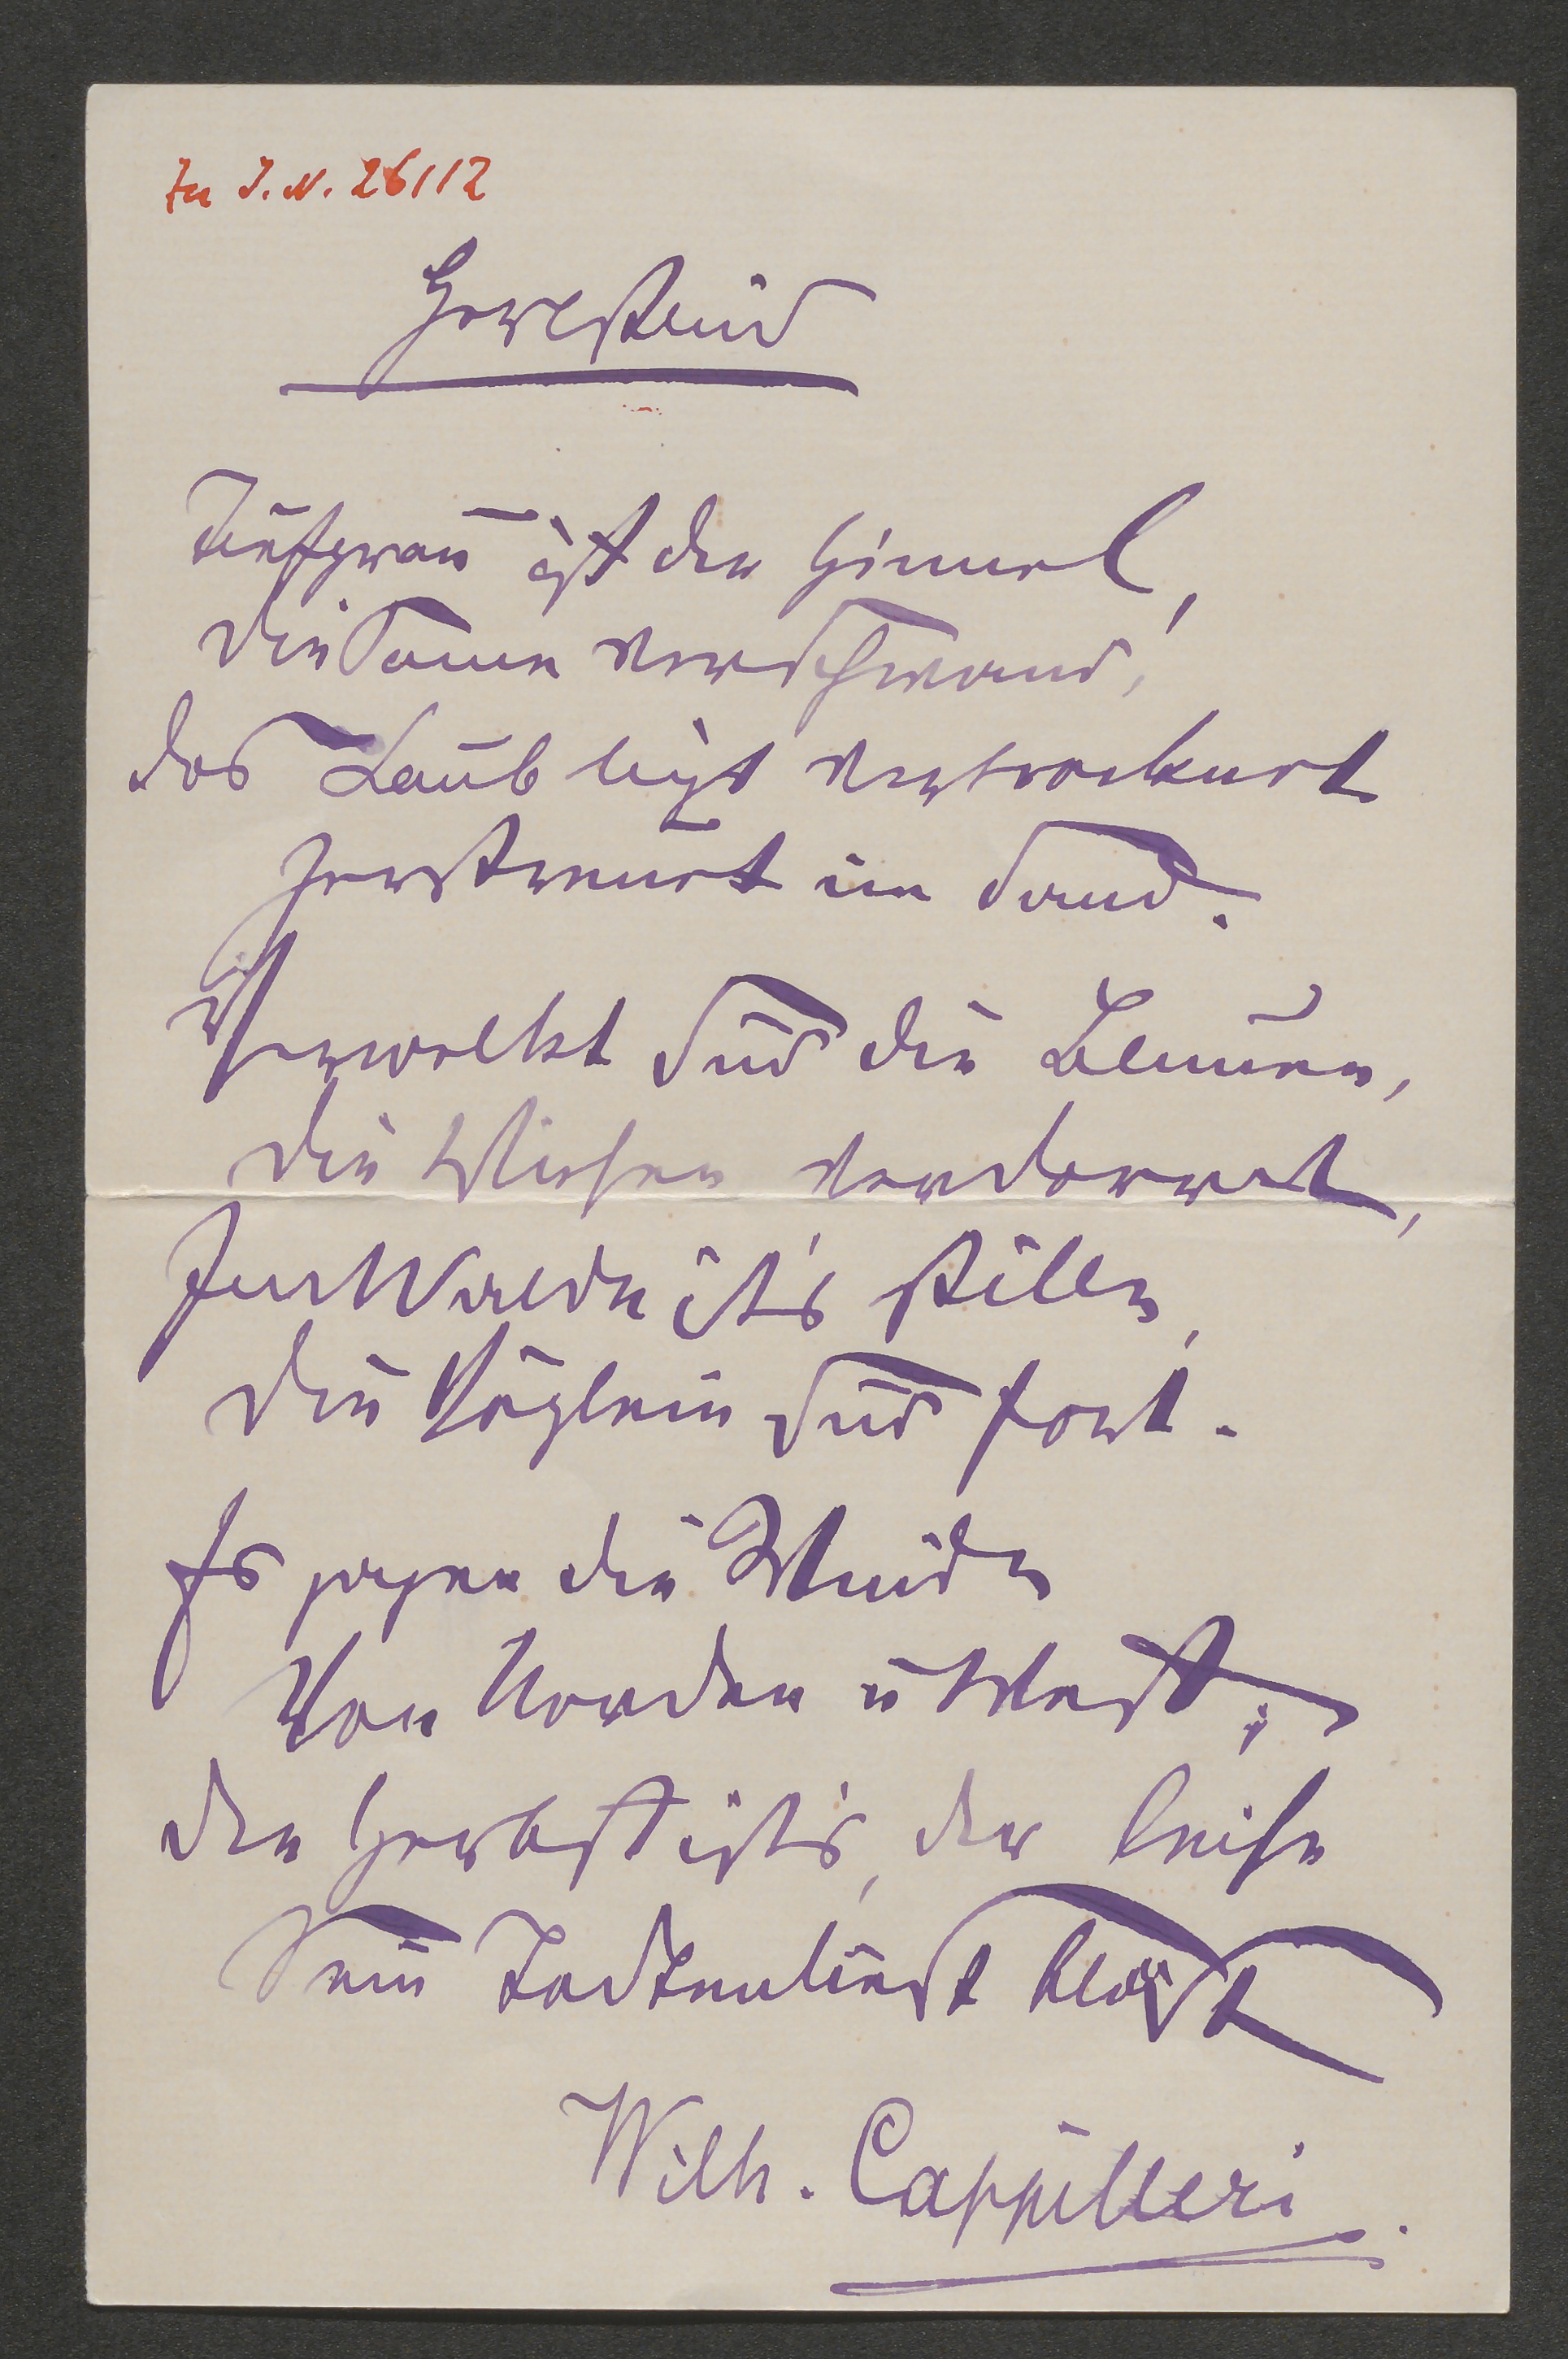 Zu I.N. 26112
Herbstlied
Tiefgrau ist der Himmel,
die Sonne verschwand,
das Laub liegt vertrocknet
zerstreut im Sand.
Verwelkt sind die Blumen,
die Wiesen verdorrt,
Im Walde ist's stille,
die Vöglein sind fort.
Es jagen die Winde
Von Norden u West;
der Herbst ist's, der leise
Sein Todtenlied bläst
Wilh. Cappilleri.